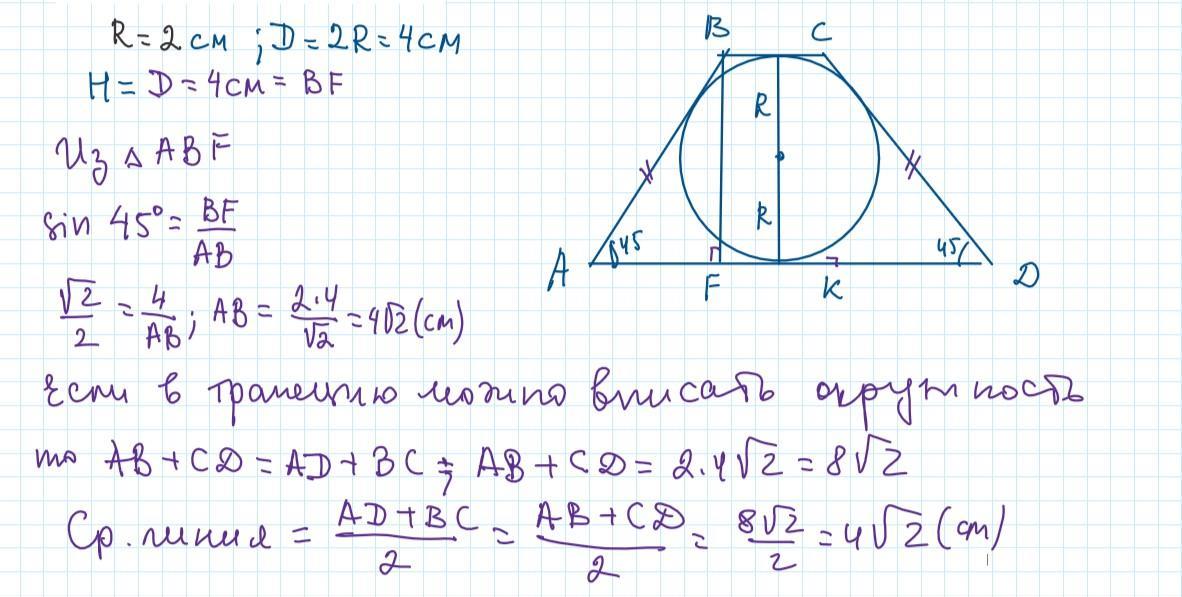 R = 2 см ; D = 2R = 4 см
H = D = 4 см = BF
Из △ ABF
sin 45° = BF/AB
√2/2 = 4/AB ; AB = 2·4/√2 = 4√2 (см)
Если в трапецию можно вписать окружность
то AB + CD = AD + BC ; AB + CD = 2·4√2 = 8√2
Ср. линия = AD + BC/2 = AB + CD/2 = 8√2/2 = 4√2 (см)
B C
R
R
A 45 45 D
F K